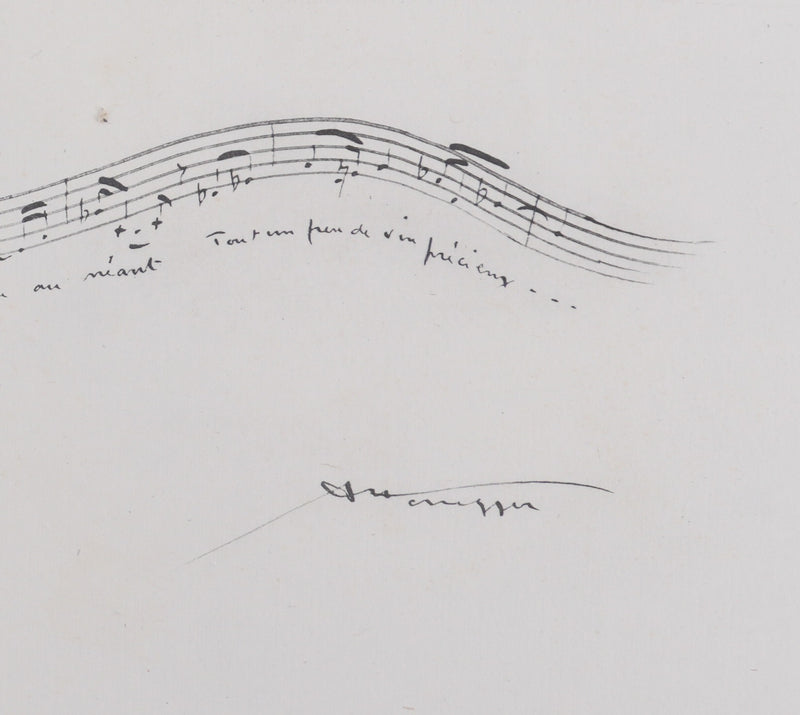 au néant Tout un peu de vin précieux ...
AHonegger